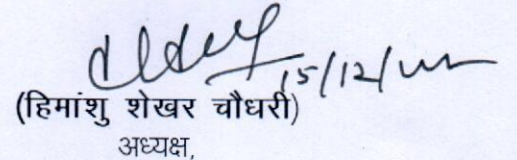 15/12/
(हिमांशु शेखर चौधरी)
अध्यक्ष,